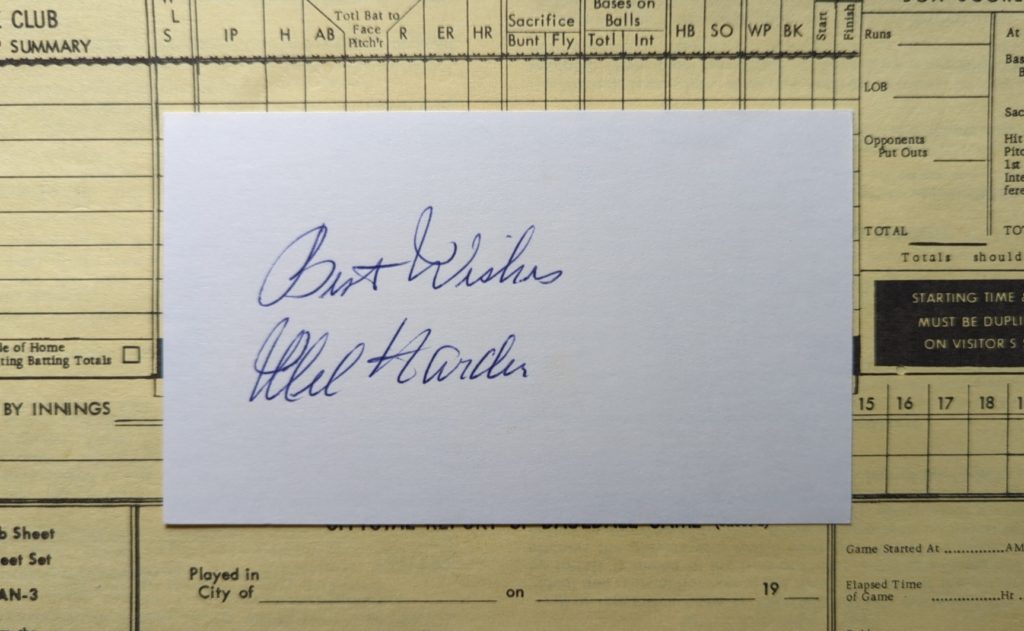 CLUB
SUMMARY
W L S
IP H AB Totl Bat to Face Pitch'r R ER HR Sacrifice Bunt Fly Bases on Balls Totl Int HB SO WP BK Start Finish
BOX SCORE
Runs
At
LOB
Bas
B
Sac
Opponents
Put Outs
Hit
Pitc
1st
Inte
fere
TOTAL
TO
Totals should
STARTING TIME &
MUST BE DUPLI
ON VISITOR'S
Best Wishes
Mel Harder
le of Home
ting Batting Totals
BY INNINGS
15 16 17 18 1
OFFICIAL REPORT OF BASEBALL GAME
b Sheet
eet Set
AN-3
Played in
City of on 19
Game Started At AM
Elapsed Time
of Game Hr